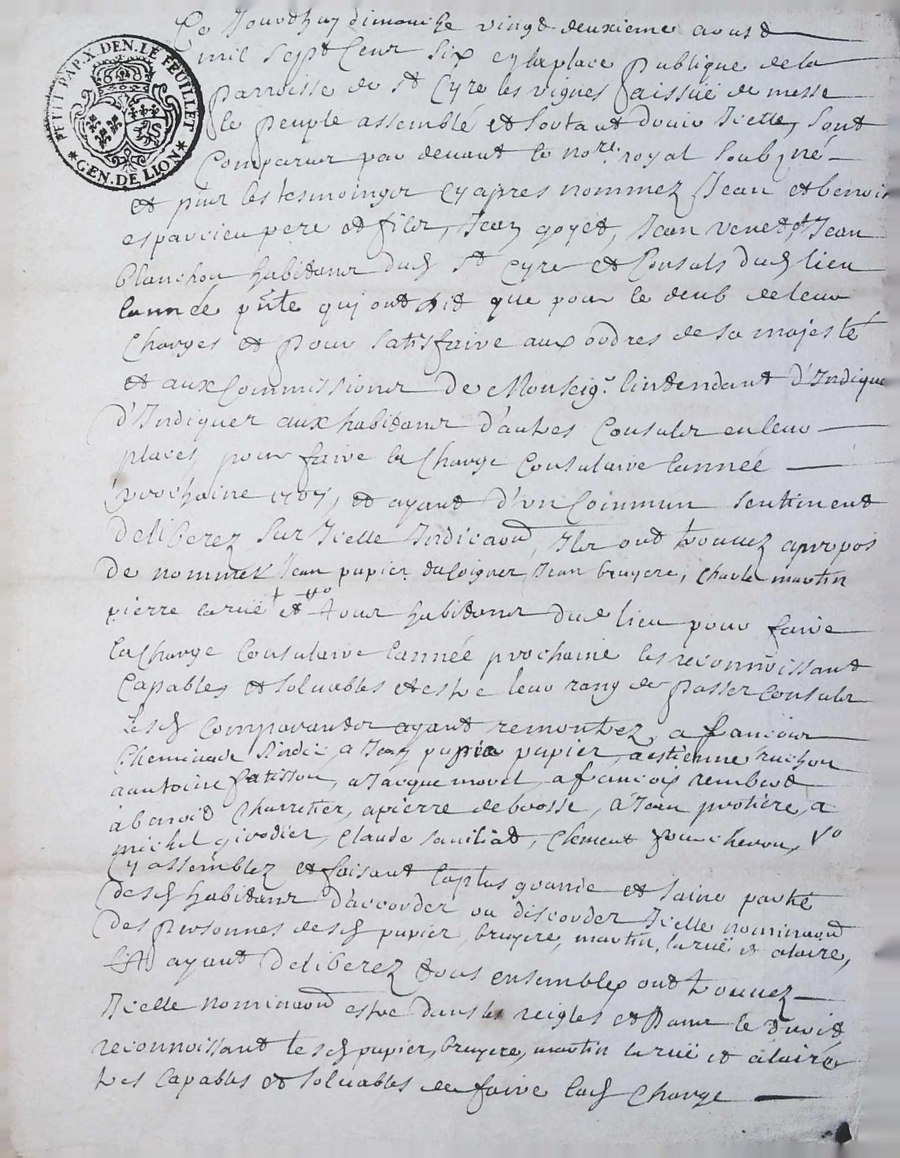 PETIT PAP. X DEN. LE FEUILLET
GEN. DE LION
Ce Jourdhuy dimanche vingt deuxieme aoust
mil Sept Cent Six en la place publique de la
parroisse de St Cyre les vignes a issue de messe
le peuple assemblé et Sortant douir Icelle, Sont
Comparus par devant le nore royal Soubzné
et puis les tesmoings Cy apres nommez Jean et benoit
esparcieu pere et fils, Jean goyet, Jean venet, et Jean
Planchon habitans dud St Cyre et Consuls dud lieu
lannée pnte qui ont dit que pour le deub de leur
Charges et pour Satisfaire aux ordres de sa majesté
et aux Commissions de Monseigr. lintendant d'Indique
d'Indiquer aux habitans d'autres Consuls en leur
places, pour faire la Charge Consulaire lannée
prochaine 1707, et ayant d'un Commun Sentiment
deliberez Sur Icelle Indicaon, Ils ont trouvez apropos
de nommer Jean papier du Coignet, Jean bruyere, Charle martin
pierre laruë et tous habitans dud lieu pour faire
la Charge Consulaire lannée prochaine les reconnoissant
Capables et Solvables et estre leur rang de passer Consuls
Lesd Comparants ayant remontrez, a francois
Cheminade Sindic a Jean papier, a estienne ruchon
a antoine fatisson, a Jacque morel, a francois rembert
à benoit Charretier, a pierre debosse, a Jean protiere, a
michel girodier, Claude Saniliat, Clement foucheron, Vo
Cy assemblez et faisant la plus grande et Saine partie
desd habitans d'accorder ou discorder Icelle nominaon
des personnes desd papier, bruyere, martin, laruë et alaire,
ayant deliberez tous ensembles ont trouvez
Icelle nominaon estre dans les reigles et dans le droit
reconnoissant lesd papier, bruyere, martin laruë et alaire
tres Capables et Solvables de faire lad Charge